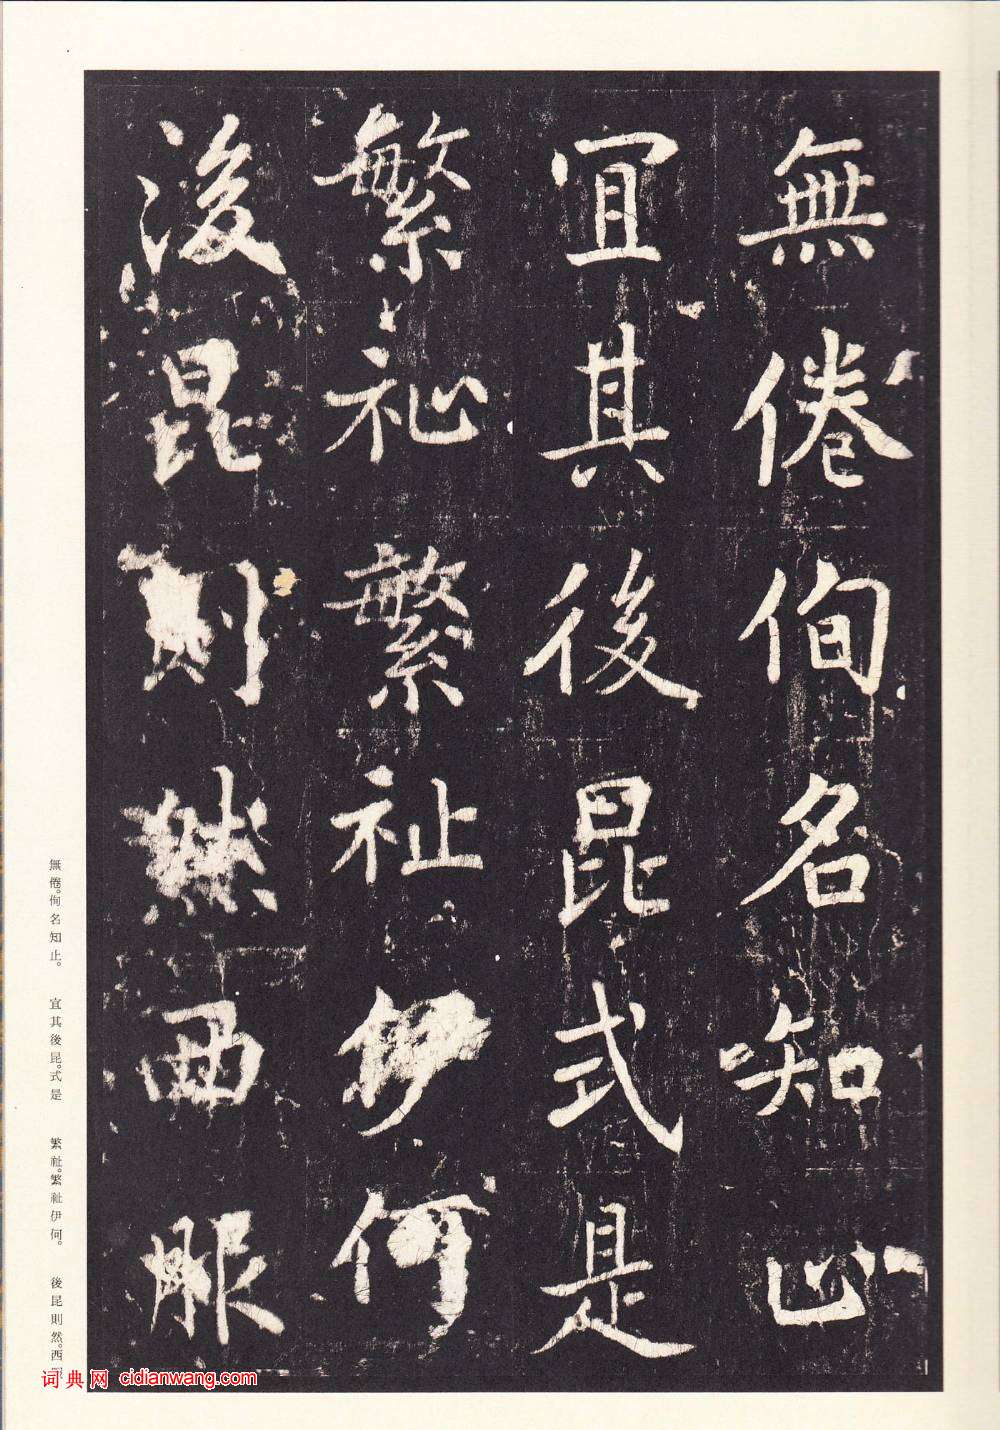 無倦侚名知止
宜其後昆式是
繁祉繁祉伊何
後昆則然西服
無倦。侚名知止。 宜其後昆。式是 繁祉。繁祉伊何。 後昆則然。西
词典网 cidianwang.com